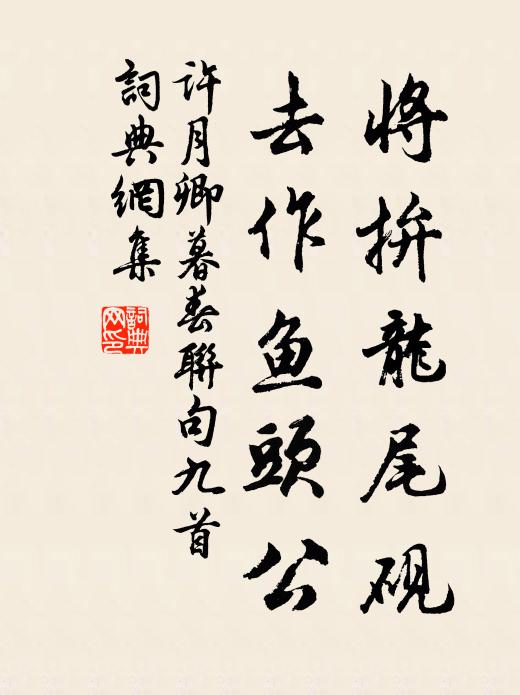 將拚龍尾硯
去作魚頭公
許月卿暮春聯句九首
詞典網集
詞典网印